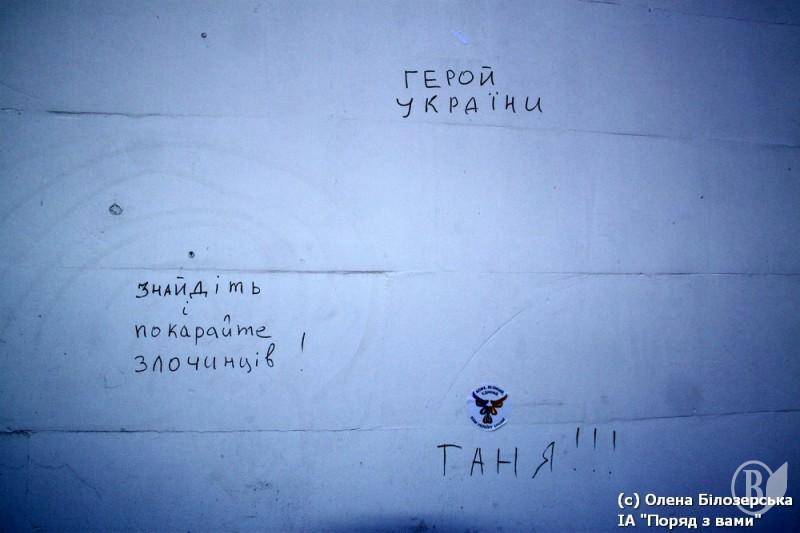 ГЕРОЙ
УКРАЇНИ
ЗНАЙДІТЬ
І
ПОКАРАЙТЕ
ЗЛОЧИНЦІВ !
ТАНЯ!!!
(c) Олена Білозерська
ІА "Поряд з вами"
В